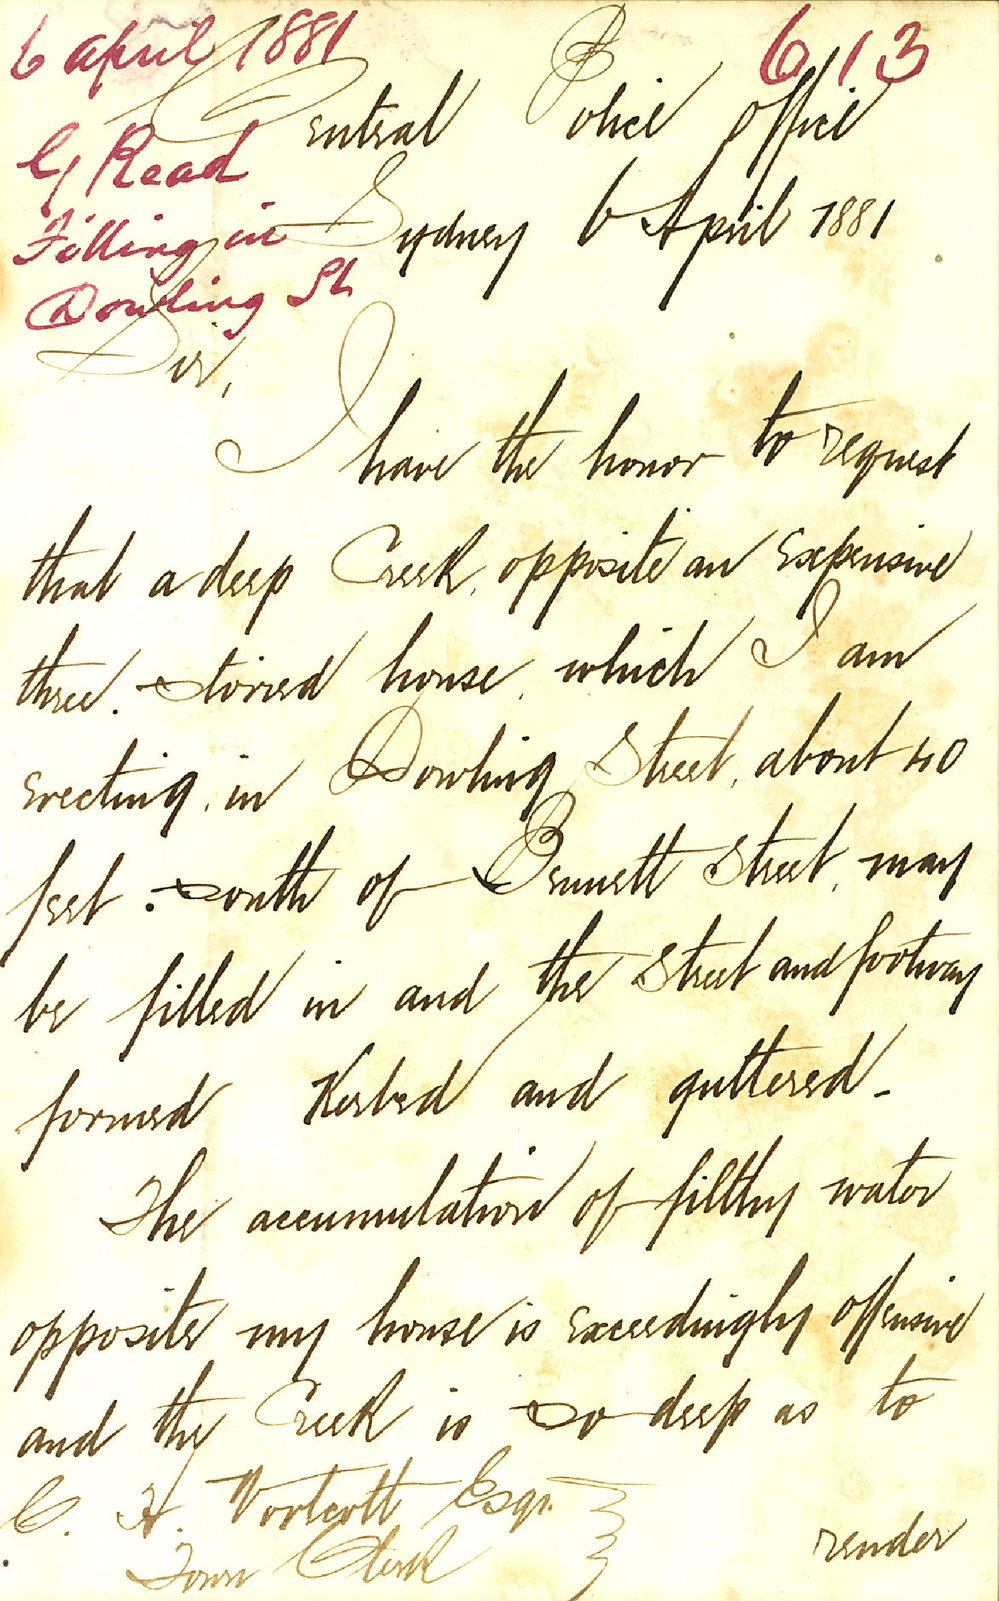 6 april 1881
613
G Read
Filling in
Dowling St
Central Police Office
Sydney 6 April 1881
Sir,
I have the honor to request
that a deep Creek, opposite an expensive
three-storied house, which I am
erecting, in Dowling Street, about 40
feet south of Bennett Street, may
be filled in and the Street and footway
formed Kerbed and guttered -
The accumulation of filthy water
opposite my house is exceedingly offensive
and the Creek is so deep as to
render
C. H. Woolcott Esqr.
Town Clerk